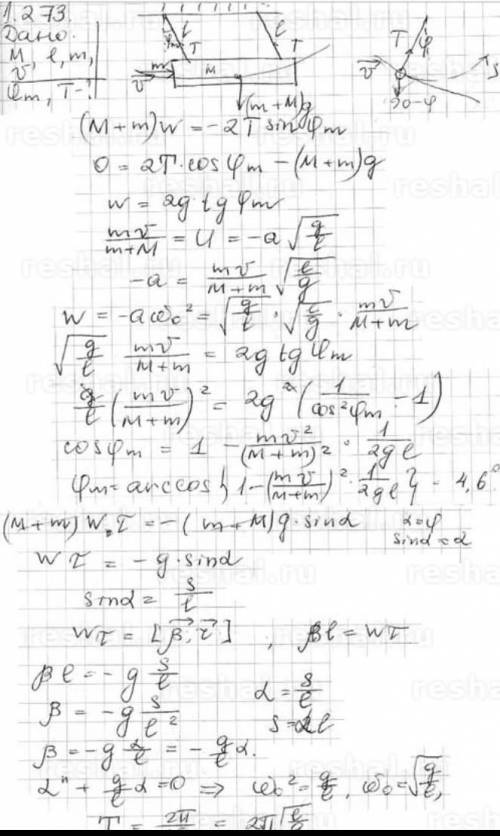 1.273.
Дано:
M, l, m,
v
φm, T-
l T l T
m M
v
(m+M)g
T φ
v s
90-φ
(M+m)w = -2T sin φm
0 = 2T·cos φm - (M+m)g
w = 2g·tg φm
mv/(m+M) = U = -a√(g/l)
-a = mv/(M+m) √(l/g)
w = -aω₀² = √(g/l) · √(l/g) · mv/(M+m)
√(g/l) mv/(M+m) = 2g tg φm
g/l (mv/(M+m))² = 2g² (1/cos²φm - 1)
cos φm = 1 - mv²/(M+m)² · 1/2gl
φm = arccos{1-(mv/(M+m))²·1/2gl} - 4,6°
(M+m)Wτ = -(m+M)g·sinα α=φ
sinα=α
Wτ = -g·sinα
sinα = s/l
Wτ = [β,τ] , βl = Wτ
βl = -g s/l
α = s/l
β = -g s/l²
s=αl
β = -g α/l = -g/l α.
α" + g/l α = 0 ⇒ ω₀² = g/l, ω₀ = √(g/l),
T = 2π/ = 2π√(l/g)
reshal.ru